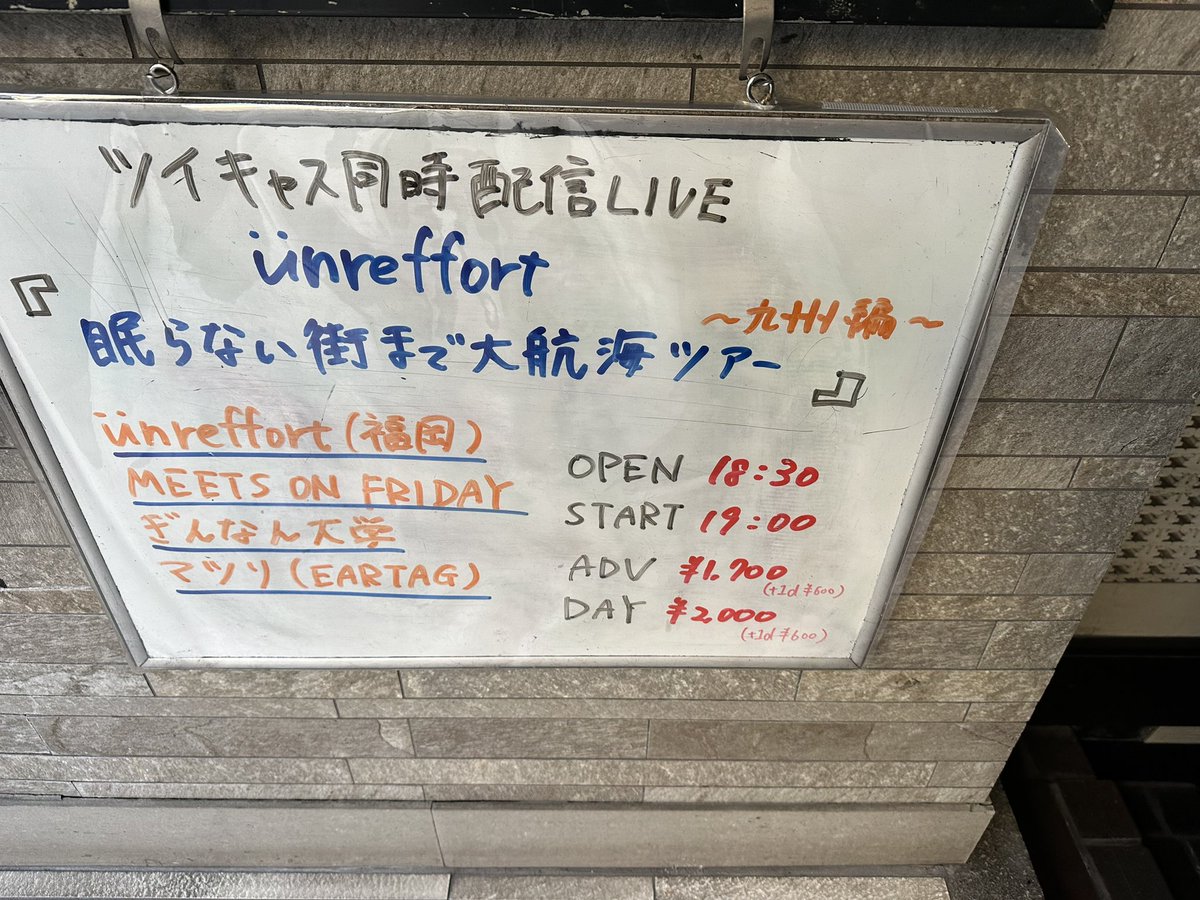 ツイキャス同時配信LIVE
ünreffort
『眠らない街まで大航海ツアー ～九州編～』
ünreffort(福岡)
MEETS ON FRIDAY
ぎんなん大学
マツリ(EARTAG)
OPEN 18:30
START 19:00
ADV ¥1.700
(+1d ¥600)
DAY ¥2,000
(+1d ¥600)